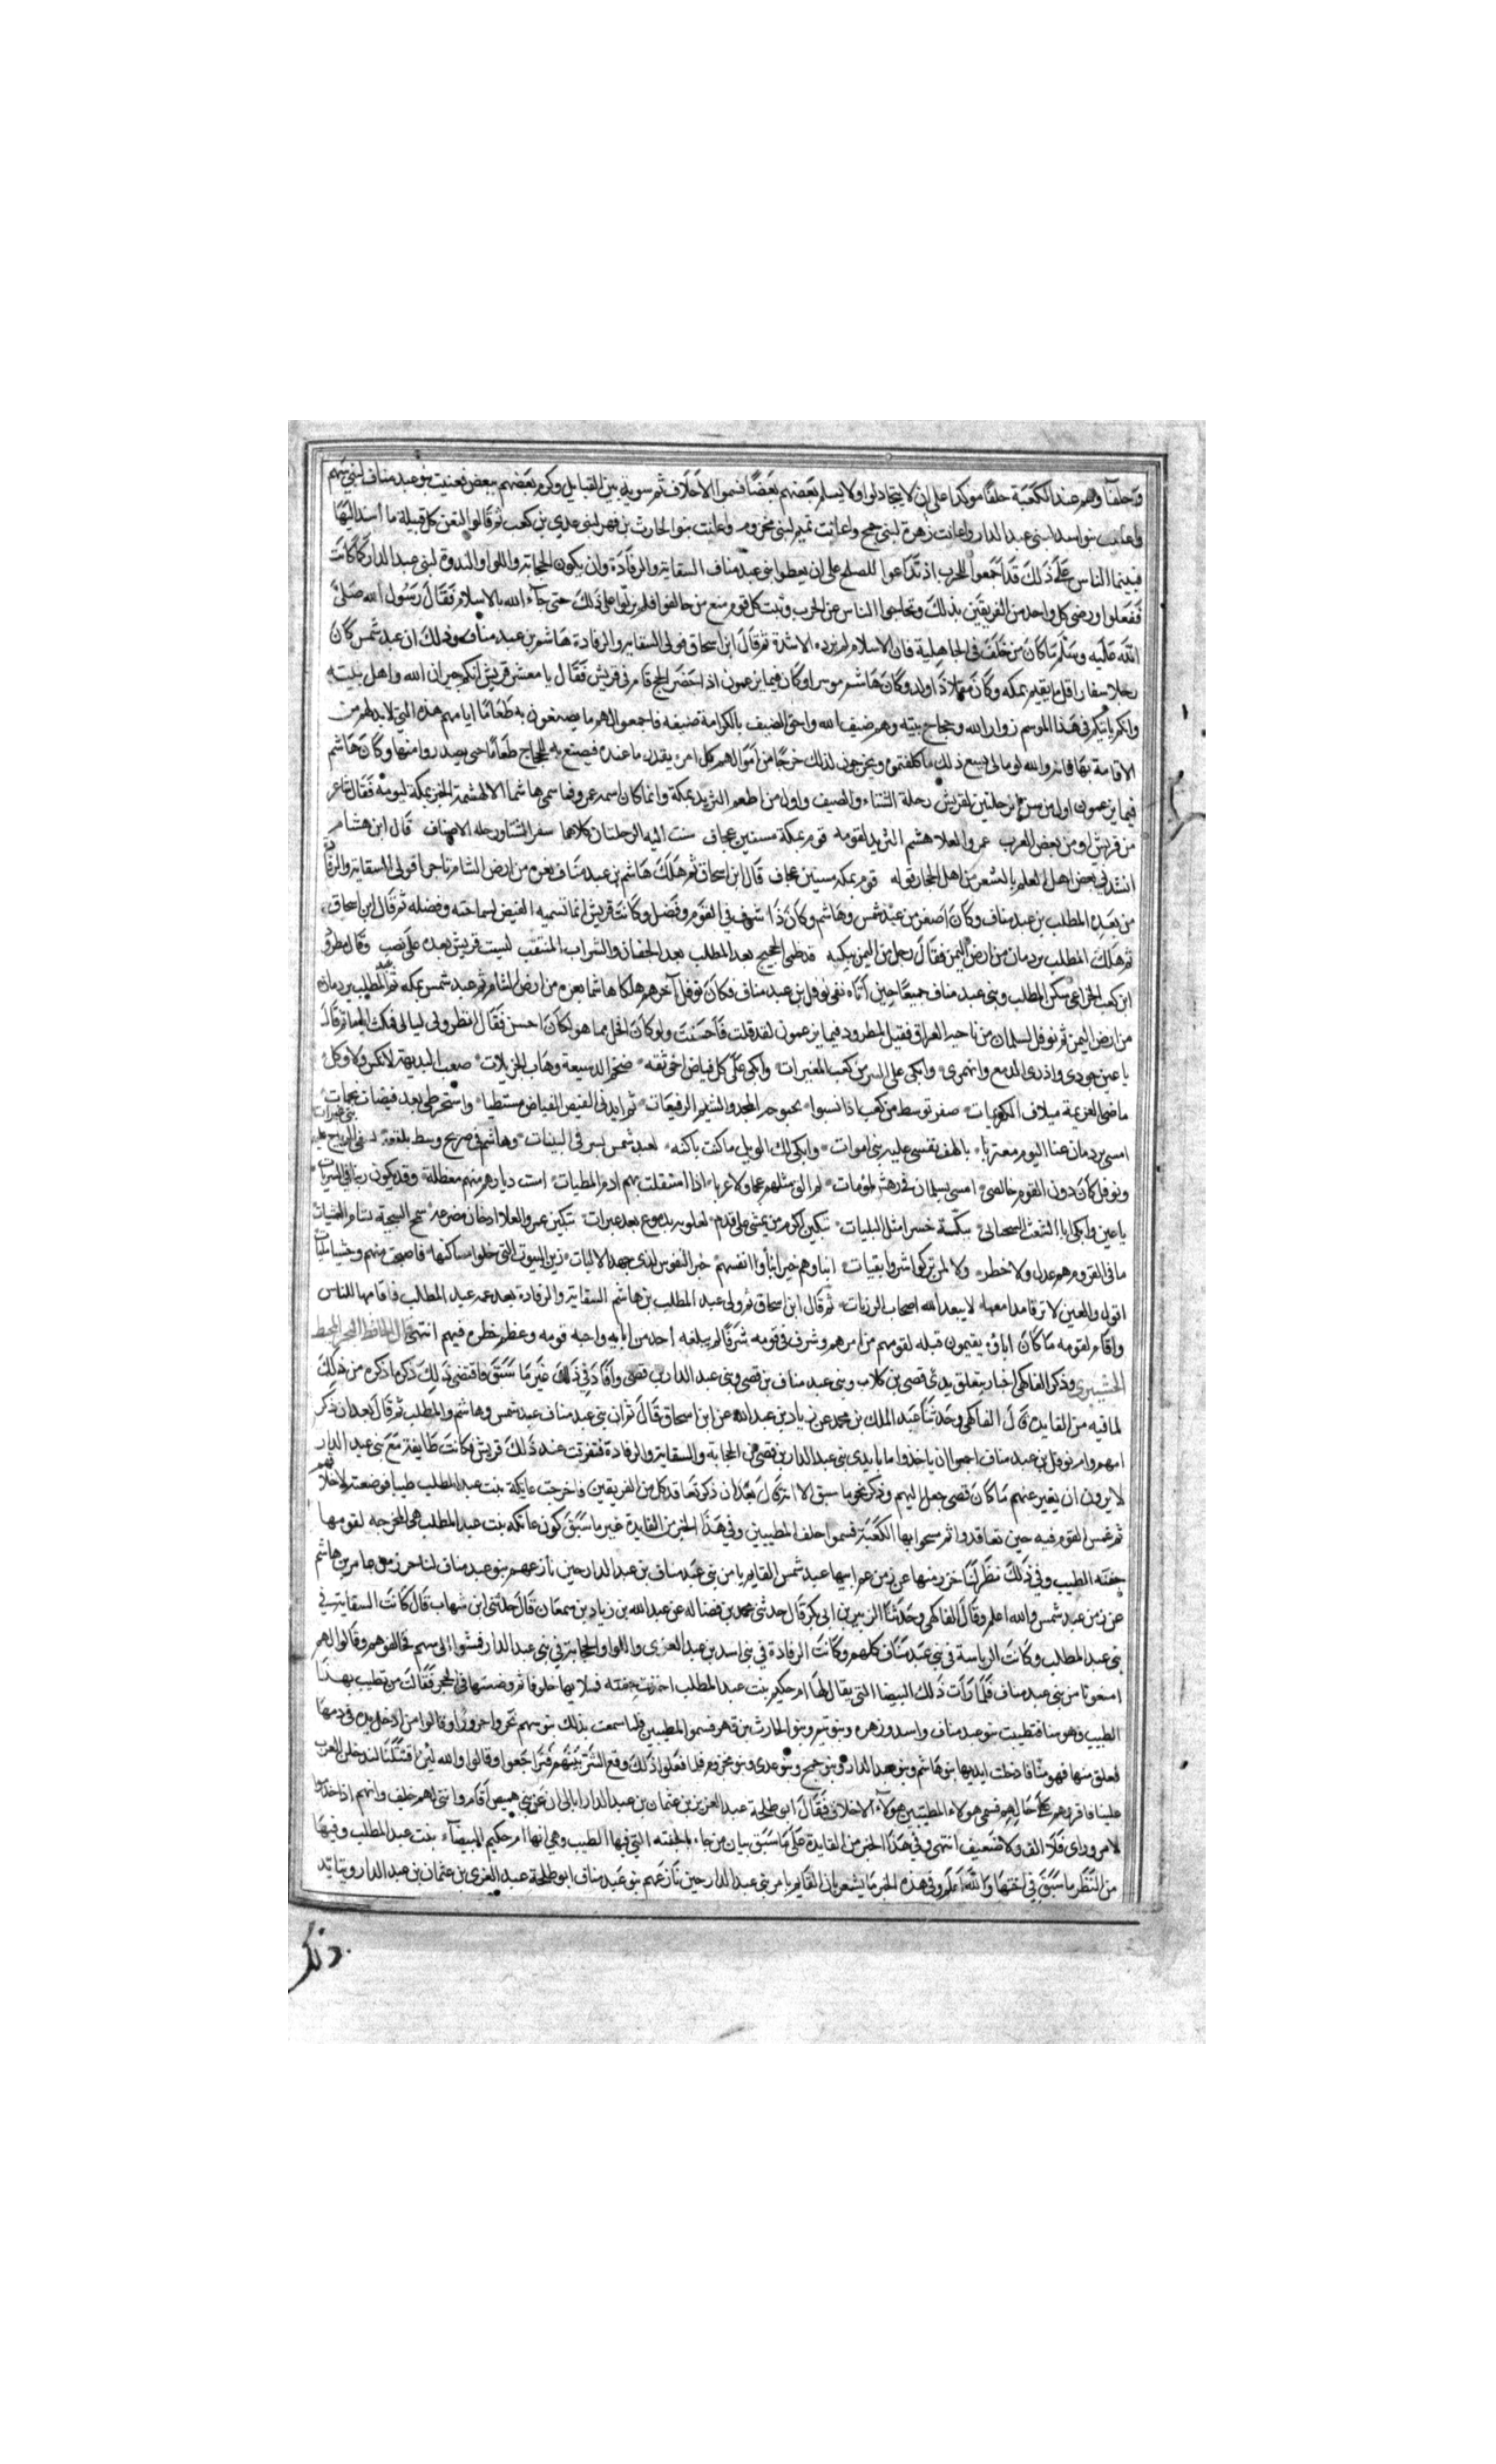 وحلفا وهم عند الكعبة حلفا موكدا على ان لا يتجادلوا ولا يسلم بعضهم بعضا فسموا الاحلاف ثم سوند بين القبايل وكزم بعضهم ببعض فعنيت بنو عبد مناف لبني سهم
بنو اسد لبني عبد الدار واعانت زهرة لبني جمح واعانت تميم لبني مخزوم واعانت بنوا الحارث بن فهر لبني عدي بن كعب ثم قالوا لتفن كل قبيلة ما أسند اليها
فبينما الناس على ذلك قد اجمعوا للحرب اذ تداعوا للصلح على ان يعطوا بنو عبد مناف السقاية والرفادة وان يكون الحجابة واللوا والندوة لبني عبد الدار كما كانت
ففعلوا ورضي كل واحد من الفريقين بذلك وتحاجبوا الناس عن الحرب وثبت كل قوم مع من حالفوا فلم يزلوا على ذلك حتى جآء الله بالاسلام فقال رسول الله صلى
الله عليه وسلم ما كان من حلف في الجاهلية فان الاسلام لم يزده الا شدة ثم قال ابن اسحاق فولي السقاية والرفادة هاشم بن عبد مناف وذلك ان عبد شمس كان
رجلا سفارا قل ما يقيم بمكه وكان مقلا ذا ولد وكان هاشم موسرا وكان فيما يزعمون اذا حضر الحج قام في قريش فقال يا معشر قريش انكم جيران الله واهل بيته
وانكم ياتيكم في هذا الموسم زوار الله وحجاج بيته وهم ضيف الله واحق الضيف بالكرامة ضيفه فاجمعوا لهم ما يصنعون به طعاما ايامهم هذه التي لا بد لهم من
الاقامة بها فانه والله لو مالي يسع ذلك ما كلفتموه ويخرجون لذلك خرجا من اموالهم كل امرء بقدر ما عنده فيصنع به للحجاج طعاما حتى يصدروا منها وكان هاشم
فيما يزعمون اول من سن الرحلتين لقريش رحلة الشتاء والصيف واول من اطعم الثريد بمكة وانما كان اسمه عمرو فما سمي هاشما الا لهشمه الخبز بمكة لقومه فقال شاعر
من قريش او من بعض العرب عمرو العلا هشم الثريد لقومه قوم بمكة مسنتين عجاف سنت اليه الرحلتان كلاهما سفر الشتا ورحله الاصياف قال ابن هشام
انشدني بعض اهل العلم بالشعر من اهل الحجاز قوله قوم بمكه مسنتين عجاف قال ابن اسحاق ثم هلك هاشم بن عبد مناف بغزه من ارض الشام تاجرا فولي السقاية والرفادة
من بعده المطلب بن عبد مناف وكان اصغر من عبد شمس وهاشم وكان ذا شرف في القوم وفضل وكانت قريش انما تسميه الفيض لسماحته وفضله ثم قال ابن اسحاق
ثم هلك المطلب بردمان من ارض اليمن فقال رجل من اليمن يبكيه قد ظمى الحجيج بعد المطلب بعد الجفان والشراب المنثقب ليت قريش بعده على نصب وقال مطرود
ابن كعب الخزاعي يبكي المطلب وبني عبد مناف جميعا حين أتاه نعي نوفل بن عبد مناف فكان نوفل آخرهم هلكا هاشما بغزه من ارض الشام ثم عبد شمس بمكه ثم المطلب بردمان
من ارض اليمن ثم نوفل بسلمان من ناحيه العراق فقيل لمطرود فيما يزعمون لقد قلت فاحسنت ولو كان افحل مما هو لكان احسن فقال انظروني ليالي فمكث اياما ثم قال
يا عين جودي واذري الدمع وانهمري وابكي على السر من كعب المغيرات وابكي على كل فياض اخي ثقه ضخم الدسيعة وهاب الجزيلات صعب البديهة لا نكس ولا وكل
ماضي العزيمة متلاف الكريمات صقر توسط من كعب اذا نسبوا بحبوحه المجد والشم الرفيعات ثم اندبي الفيض الفياض مستطبا واستخرطي بعد فيضات بجمات
امسى بردمان عنا اليوم مغتربا يا لهف نفسي عليه بني اموات وابكي لك الويل ما كنت باكيه لعبد شمس بسرقي البينات وهاشم في ضريح وسط بلقعة تسفي الرياح عليه بني غيرات
ونوفل كان دون القوم خالصي امسى بسلمان في رمس لمومات لم الق مثلهم عجما ولا عربا اذا استقلت بهم ادم المطيات امست ديارهم منهم معطلة وقد يكون زينا في السريات
يا عين وابكي ابا الشعث الشجيات يبكينه حسرا مثل البليات تبكين اكرم من يمشي على قدم يعولنه بدموع بعد عبرات تبكين عمرو العلا اذ حان مصرعه سمح السجية بسام العشيات
ما في القروم لهم عدل ولا خطر ولا لمن تركوا شروا بقيات ابناوهم خير ابنا وانفسهم خير النفوس لدى جهد الاليات زين البيوت التي خلوا مساكنها فاصبحت منهم وحشا خليات
اقول والعين لا ترقا مدامعها لا يبعد الله اصحاب الرزيات ثم قال ابن اسحاق ثم ولي عبد المطلب بن هاشم السقاية والرفادة بعد عمه عبد المطلب فاقامها للناس
واقام لقومه ما كان اباؤه يقيمون قبله لقومهم من امرهم وشرف في قومه شرفا لم يبلغه أحد من ابايه واحبه قومه وعظم خطره فيهم انتهى قال الحافظ
وذكر الفاكهي اخبار يتعلق بولي قصي بن كلاب وبني عبد مناف بن قصي وبني عبد الدار بن قصي وأفاد في ذلك غير ما سبق فاقتضى ذلك ذكر ما ذكره من ذلك
لما فيه من الفايدة قال الفاكهي وحدثنا عبد الملك بن محمد عن زياد بن عبد الله عن ابن اسحاق قال ثم ان بني عبد مناف عبد شمس وهاشم والمطلب ثم قال بعد ان ذكر
امهم وام نوفل بن عبد مناف اجمعوا ان ياخذوا ما بايدي بني عبد الدار بن قصي من الحجابة والسقاية والرفادة فتفرقت عند ذلك قريش فكانت طايفة مع بني عبد الدار
لا يرون ان يغير عنهم ما كان قصي جعل اليهم وذكر نحو ما سبق الا انه قال بعد ان ذكر تعاقد كل من الفريقين فاخرجت عاتكة بنت عبد المطلب طيبا فوضعته لاحلافهم
ثم غمس القوم فيه حين تعاقدوا ثم مسحوا بها الكعبة فسموا حلف المطيبين وفي هذا الخبر من الفايدة غير ما سبق كون عاتكه بنت عبد المطلب هي المخرجه لقومها
جفنه الطيب وفي ذلك نظر عبد شمس القايم بامر بني عبد مناف بن عبد الدار حين نازعهم بنو عبد مناف عامر بن هاشم
عن بن عبد شمس والله اعلم وقال الفاكهي وحدثنا الزبير بن ابي بكر قال حدثني محمد بن فضاله عن عبد الله بن زياد بن سمعان قال حدثني ابن شهاب قال كانت السقاية في
بني عبد المطلب وكانت الرياسة في بني عبد مناف كلهم وكانت الرفادة في بني اسد بن عبد العزى واللوا والحجابة في بني عبد الدار فمشوا الى سهم فحالفوهم وقالوا لهم
امنعونا من بني عبد مناف فلما رأت ذلك البيضا التي يقال لها ام حكيم بنت عبد المطلب اخذت جفنه فملاتها خلوقا ثم وضعتها في الحجر فقالت من تطيب بهذا
الطيب فهو منا فتطيبت بنو عبد مناف واسد وزهره وبنو تيم وبنو الحارث بن فهر فسموا المطيبين فلما سمعت بذلك بنو سهم نحروا جزورا وقالوا من ادخل يده في دمها
فعلق منها فهو منا فادخلت ايديها بنو هاشم وبنو عبد الدار وبنو جمح وبنو عدى وبنو مخزوم فلما فعلوا ذلك وقع الشر بينهم فتراجعوا وقالوا والله لين اقتتلنا لتدخلن العرب
علينا فاقروهم على حالهم فسمي هولاء المطيبين وهولاء الاحلاف فقال ابو طلحة عبد العزيز بن عثمان بن عبد الدار اتاني ان عن بني هصيص أقاموا انني لهم حليف وانهم اذا حدثوا
لامر وراى فلا الف ولا ضعيف انتهى وفي هذا الخبر من الفايدة على ما سبق بيان من جاء بالجفنه التي فيها الطيب وهي انها ام حكيم البيضآء بنت عبد المطلب وفيها
من النظر ما سبق في اختها والله اعلم وفي هذه الخبر ما يشعر بان القايم بامر بني عبد الدار حين نازعهم بنو عبد مناف ابو طلحة عبد العزى بن عثمان بن عبد الدار